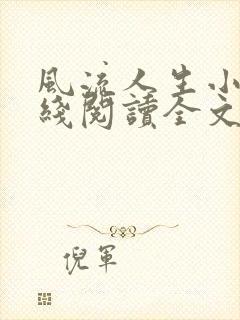 風流人生小
綫閱讀全文
倪軍